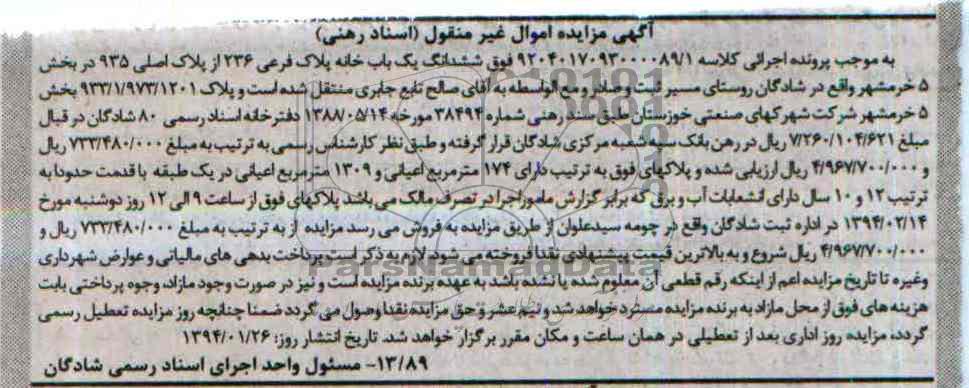 آگهی مزایده اموال غیر منقول (اسناد رهنی)
به موجب پرونده اجرائی کلاسه ۹۲۰۴۰۱۷۰۹۳۰۰۰۰۸۹/۱ فوق ششدانگ یک باب خانه پلاک فرعی ۲۳۶ از پلاک اصلی ۹۳۵ در بخش
۵ خرمشهر واقع در شادگان روستای مسیر ثبت و صادر و مع الواسطه به آقای صالح تابع جابری منتقل شده است و پلاک ۹۳۳/۱/۹۷۳/۱۲۰۱ بخش
۵ خرمشهر شرکت شهرکهای صنعتی خوزستان طبق سند رهنی شماره ۳۸۴۹۴ مورخه ۱۳۸۸/۰۵/۱۴ دفترخانه اسناد رسمی ۸۰ شادگان در قبال
مبلغ ۷/۲۶۰/۱۰۴/۶۲۱ ریال در رهن بانک سپه شعبه مرکزی شادگان قرار گرفته و طبق نظر کارشناس رسمی به ترتیب به مبلغ ۷۳۳/۴۸۰/۰۰۰ ریال
و ۴/۹۶۷/۷۰۰/۰۰۰ ریال ارزیابی شده و پلاکهای فوق به ترتیب دارای ۱۷۴ مترمربع اعیانی و ۱۳۰۹ مترمربع اعیانی در یک طبقه با قدمت حدودا به
ترتیب ۱۲ و ۱۰ سال دارای انشعابات آب و برق که برابر گزارش مامور اجرا در تصرف مالک می باشد پلاکهای فوق از ساعت ۹ الی ۱۲ روز دوشنبه مورخ
۱۳۹۴/۰۲/۱۴ در اداره ثبت شادگان واقع در چومه سیدعلوان از طریق مزایده به فروش می رسد مزایده از به ترتیب به مبلغ ۷۳۳/۴۸۰/۰۰۰ ریال و
۴/۹۶۷/۷۰۰/۰۰۰ ریال شروع و به بالاترین قیمت پیشنهادی نقدا فروخته می شود لازم به ذکر است پرداخت بدهی های مالیاتی و عوارض شهرداری
وغیره تا تاریخ مزایده اعم از اینکه رقم قطعی آن معلوم شده یا نشده باشد به عهده برنده مزایده است و نیز در صورت وجود مازاد، وجوه پرداختی بابت
هزینه های فوق از محل مازاد به برنده مزایده مسترد خواهد شد و نیم عشر و حق مزایده نقدا وصول می گردد ضمنا چنانچه روز مزایده تعطیل رسمی
گردد، مزایده روز اداری بعد از تعطیلی در همان ساعت و مکان مقرر برگزار خواهد شد. تاریخ انتشار روز: ۱۳۹۴/۰۱/۲۶
۱۳/۸۹- مسئول واحد اجرای اسناد رسمی شادگان
ParsNamadData